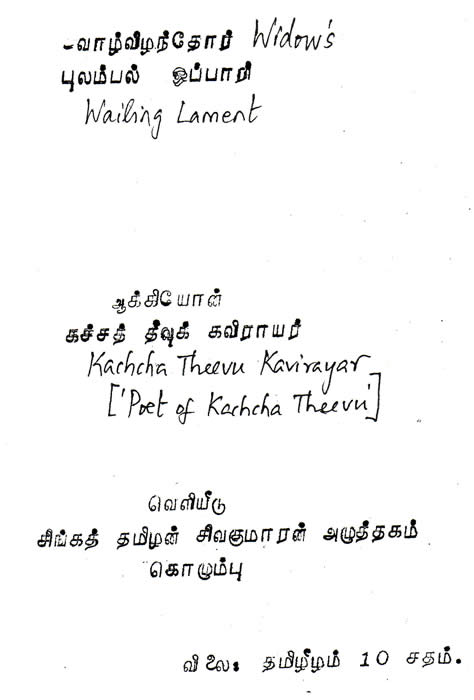 வாழ்விழந்தோர் Widow's
புலம்பல் ஒப்பாரி
Wailing Lament
ஆக்கியோன்
கச்சத் தீவுக் கவிராயர்
Kachcha Theevu Kavirayar
['Poet of Kachcha Theevu']
வெளியீடு
சிங்கத் தமிழன் சிவகுமாரன் அழுத்தகம்
கொழும்பு
விலை: தமிழீழம் 10 சதம்.